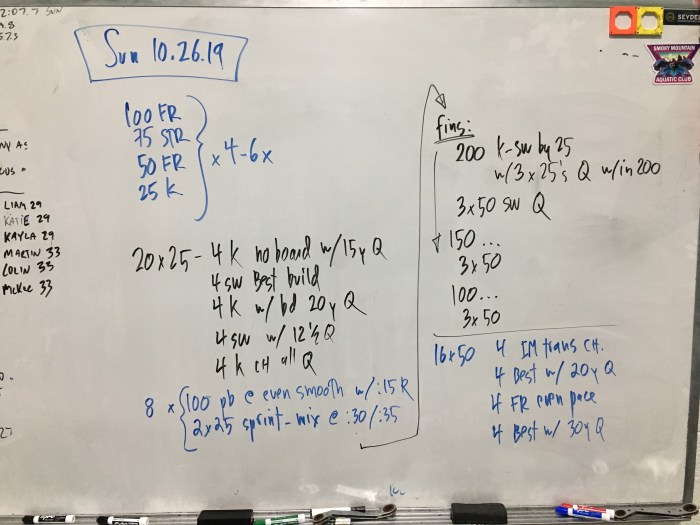 2:07.7 SUN
Sun 10.26.19
SEYDEL
SMOKY MOUNTAIN
AQUATIC CLUB
LIAM 29
KATIE 29
KAYLA 29
MARTIN 33
COLIN 33
McKee 33
100 FR
75 STR
50 FR
25 K
x 4-6x
20x25 - 4 K no board w/15y Q
4 sw Best build
4 K w/ bd 20y Q
4 sw w/ 12½ Q
4 K CH all Q
8 x 100 pb @ even smooth w/:15 R
2x25 sprint-mix @ :30/:35
fins:
200 K-sw by 25
w/3x25's Q w/in 200
3x50 sw Q
150 ...
3x50
100...
3x50
16x50 4 IM trans CH.
4 Best w/ 20y Q
4 FR even pace
4 Best w/ 30y Q